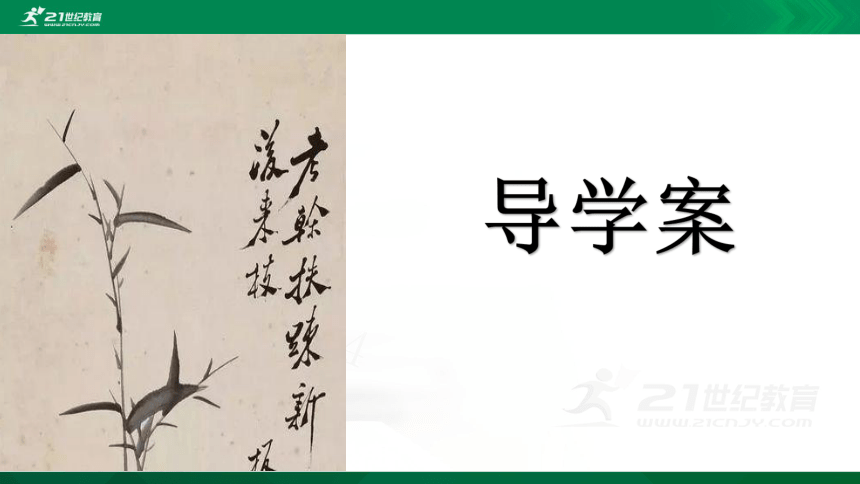 21世纪教育
WWW.21CNJY.COM
老幹扶疎新
後来枝
导学案
21世纪教育
WWW.21CNJY.COM